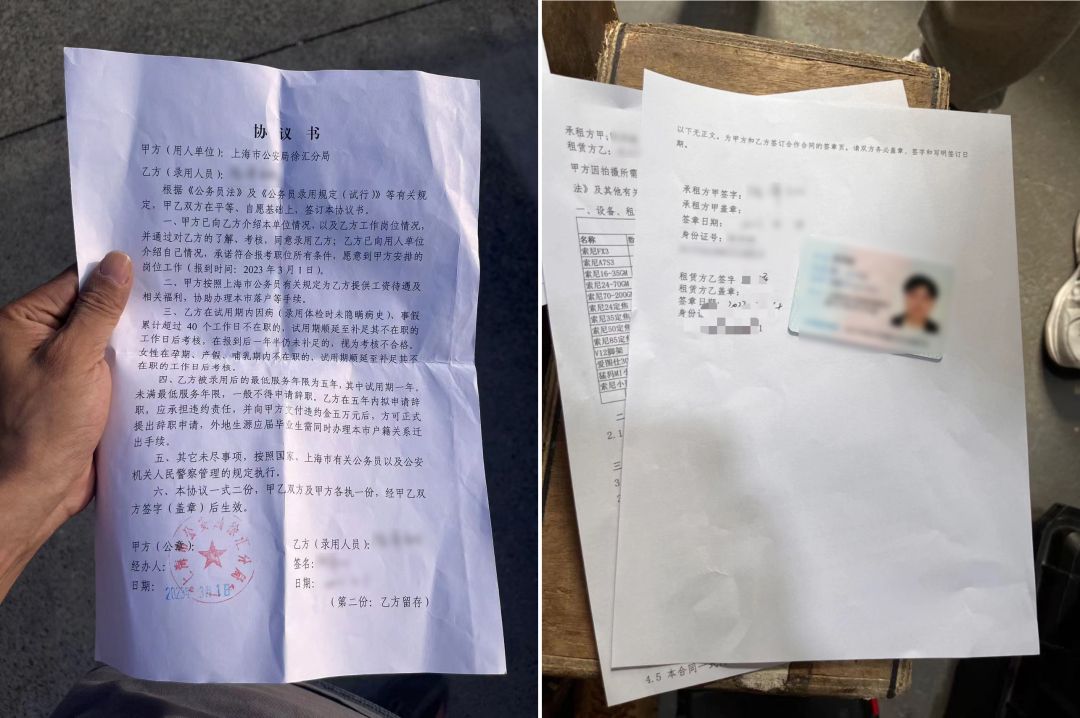 协 议 书
甲方（用人单位）：上海市公安局徐汇分局
乙方（录用人员）：
根据《公务员法》及《公务员录用规定（试行）》等有关规
定，甲乙双方在平等、自愿基础上，签订本协议书。
一、甲方已向乙方介绍本单位情况，以及乙方工作岗位情况，
并通过对乙方的了解、考核，同意录用乙方；乙方已向用人单位
介绍自己情况，承诺符合报考职位所有条件，愿意到甲方安排的
岗位工作（报到时间：2023年3月1日）。
二、甲方按照上海市公务员有关规定为乙方提供工资待遇及
相关福利，协助办理本市落户等手续。
三、乙方在试用期内因病（录用体检时未隐瞒病史）、事假
累计超过 40 个工作日不在职的，试用期顺延至补足其不在职的
工作日后考核，在报到后一年半仍未补足的，视为考核不合格。
女性在孕期、产假、哺乳期内不在职的，试用期顺延至补足其不
在职的工作日后考核。
四、乙方被录用后的最低服务年限为五年，其中试用期一年。
未满最低服务年限，一般不得申请辞职。乙方在五年内拟申请辞
职，应承担违约责任，并向甲方支付违约金五万元后，方可正式
提出辞职申请，外地生源应届毕业生需同时办理本市户籍关系迁
出手续。
五、其它未尽事项，按照国家、上海市有关公务员以及公安
机关人民警察管理的规定执行。
六、本协议一式二份，甲乙双方及甲方各执一份，经甲乙双
方签字（盖章）后生效。
甲方（公章）：
经办人：
日期：
2023年3月1日
上海市公安局徐汇分局
乙方（录用人员）：
签名：
日期：
（第二份：乙方留存）
承租方甲：
租赁方乙：
甲方因拍摄所需
法》及其他有关
一、设备、租
名称
索尼FX3
索尼A7S3
索尼16-35GM
索尼24-70GM
索尼70-200GM
索尼24定焦
索尼35定焦
索尼50定焦
索尼85定焦
V12脚架
爱图仕30
猛玛M1
索尼小
二
2.1
三
3
4.5 本合同一
以下无正文，为甲方和乙方签订合作合同的签章页。请双方务必盖章、签字和写明签订日
期。
承租方甲签字：
承租方甲盖章：
签章日期：
身份证号：
租赁方乙签字
租赁方乙盖章：
签章日期：
身份证